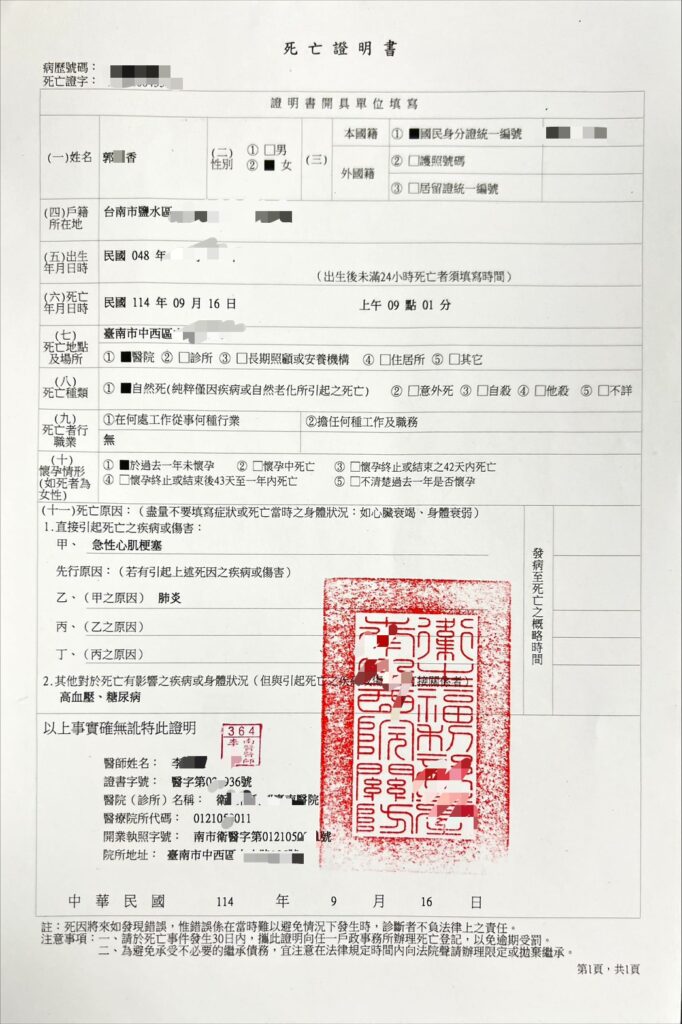 死亡證明書
病歷號碼：
死亡證字：
證明書開具單位填寫
(一)姓名 郭 香 (二)性別 ①□男 ②■女 (三) 本國籍 ①■國民身分證統一編號
外國籍 ②□護照號碼
③□居留證統一編號
(四)戶籍所在地 台南市鹽水區
(五)出生年月日時 民國 048 年
(出生後未滿24小時死亡者須填寫時間)
(六)死亡年月日時 民國 114 年 09 月 16 日 上午 09 點 01 分
(七)死亡地點及場所 臺南市中西區
①■醫院 ②□診所 ③□長期照顧或安養機構 ④□住居所 ⑤□其它
(八)死亡種類 ①■自然死(純粹僅因疾病或自然老化所引起之死亡) ②□意外死 ③□自殺 ④□他殺 ⑤□不詳
(九)死亡者行職業 ①在何處工作從事何種行業 ②擔任何種工作及職務
無
(十)懷孕情形(如死者為女性) ①■於過去一年未懷孕 ②□懷孕中死亡 ③□懷孕終止或結束之42天內死亡
④□懷孕終止或結束後43天至一年內死亡 ⑤□不清楚過去一年是否懷孕
(十一)死亡原因：(盡量不要填寫症狀或死亡當時之身體狀況：如心臟衰竭、身體衰弱)
1.直接引起死亡之疾病或傷害：
甲、 急性心肌梗塞
先行原因：(若有引起上述死因之疾病或傷害)
乙、(甲之原因) 肺炎
丙、(乙之原因)
丁、(丙之原因)
發病至死亡之概略時間
2.其他對於死亡有影響之疾病或身體狀況(但與引起死亡之疾病或傷 直接關係者)
高血壓、糖尿病
以上事實確無訛特此證明
364
醫師姓名： 李
證書字號： 醫字第0 936號
醫院（診所）名稱： 衛 醫院
醫療院所代碼： 01210 011
開業執照字號： 南市衛醫字第0121050 號
院所地址： 臺南市中西區
中華民國 114 年 9 月 16 日
註：死因將來如發現錯誤，惟錯誤係在當時難以避免情況下發生時，診斷者不負法律上之責任。
注意事項：一、請於死亡事件發生30日內，攜此證明向任一戶政事務所辦理死亡登記，以免逾期受罰。
二、為避免承受不必要的繼承債務，宜注意在法律規定時間內向法院聲請辦理限定或拋棄繼承。
第1頁，共1頁